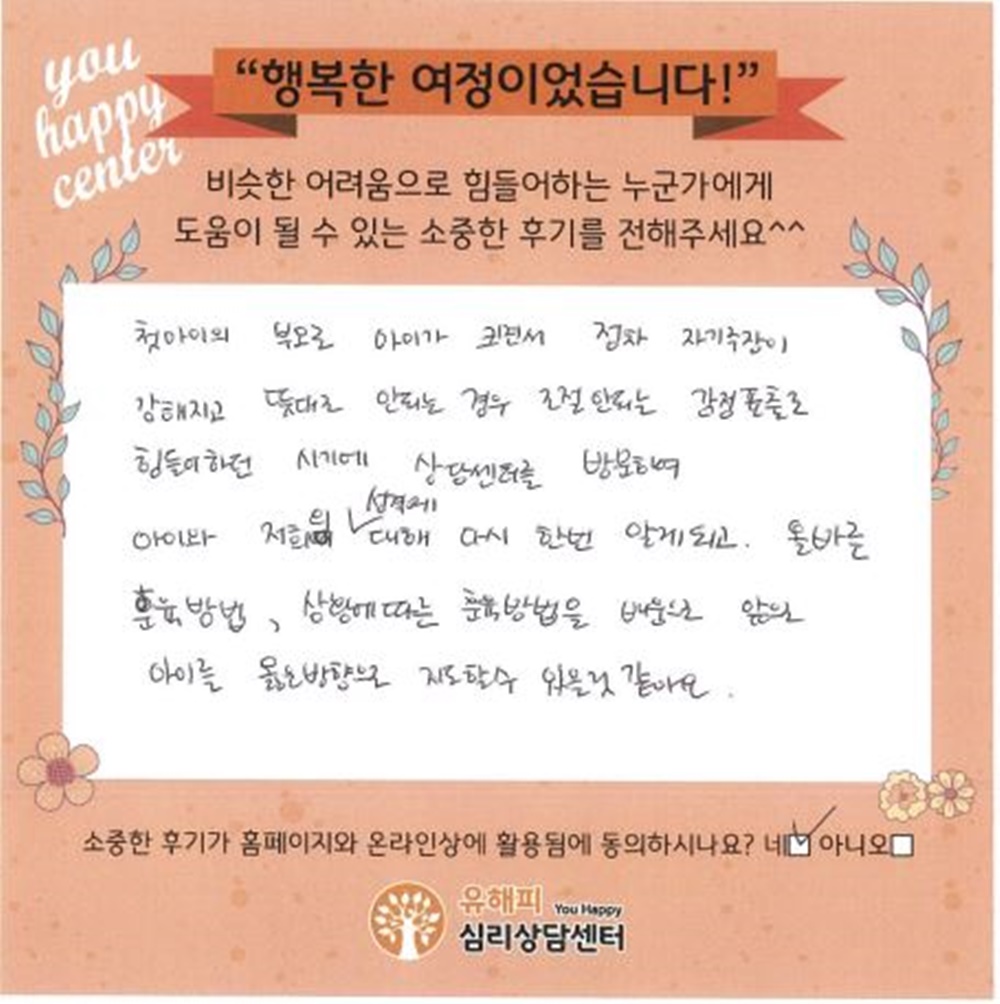 you
happy
center
“행복한 여정이었습니다!”
비슷한 어려움으로 힘들어하는 누군가에게
도움이 될 수 있는 소중한 후기를 전해주세요^^
첫아이의 부모로 아이가 크면서 점차 자기주장이
강해지고 뜻대로 안되는 경우 조절안되는 감정표출로
힘들어하던 시기에 상담센터를 방문하여
아이와 저희의 성격에 대해 다시 한번 알게되고. 올바른
훈육방법, 상황에따른 훈육방법을 배움으로 앞으로
아이를 옳은방향으로 지도할수 있을것같아요.
소중한 후기가 홈페이지와 온라인상에 활용됨에 동의하시나요? 네 아니오
유해피 You Happy
심리상담센터